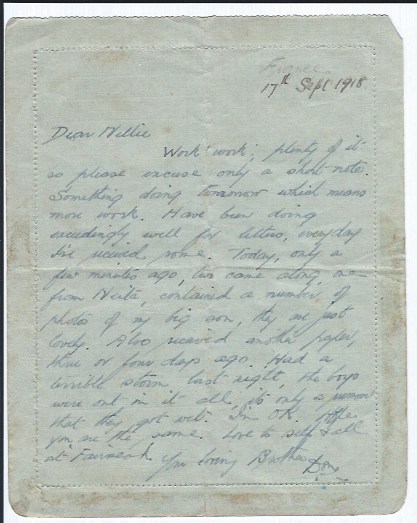 France.
17th Sept 1918
Dear Nellie
Work work, plenty of it
so please excuse only a short note.
Something doing tomorrow which means
more work. Have been doing
exceedingly well for letters, everyday
I've received some. Today, only a
few minutes ago, two came along, one
from Neita, contained a number of
photos of my big son, they are just
lovely. Also received another paper,
three or four days ago. Had a
terrible storm last night, the boys
were out in it all, its only a
that they got wet. I'm OK. Hope
you are the same. Love to self & all
at Your loving Brother